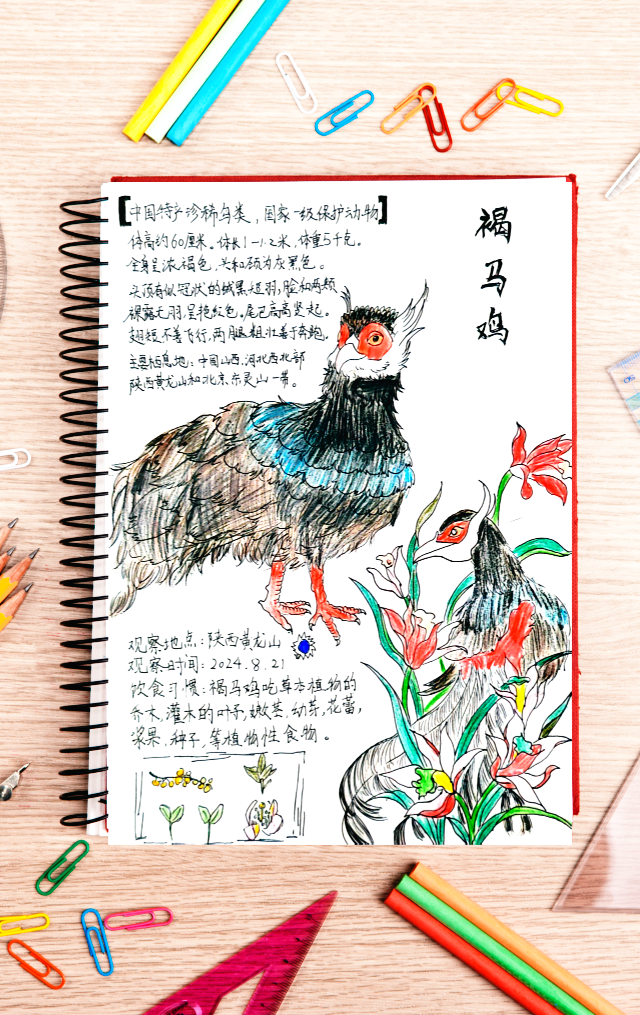 褐马鸡
【中国特产珍稀鸟类，国家一级保护动物】
体高约60厘米。体长1-1.2米，体重5千克。
全身呈浓褐色，头和颈为灰黑色。
头顶有似冠状的绒黑短羽，脸和两颊
裸露无羽，呈艳红色。尾巴高高竖起。
翅短，不善飞行，两腿粗壮善于奔跑。
主要栖息地：中国山西，河北西北部
陕西黄龙山和北京东灵山一带。
观察地点：陕西黄龙山
观察时间：2024.8.21
饮食习惯：褐马鸡吃草本植物的
乔木，灌木的叶子，嫩茎，幼芽，花蕾，
浆果，种子，等植物性食物。